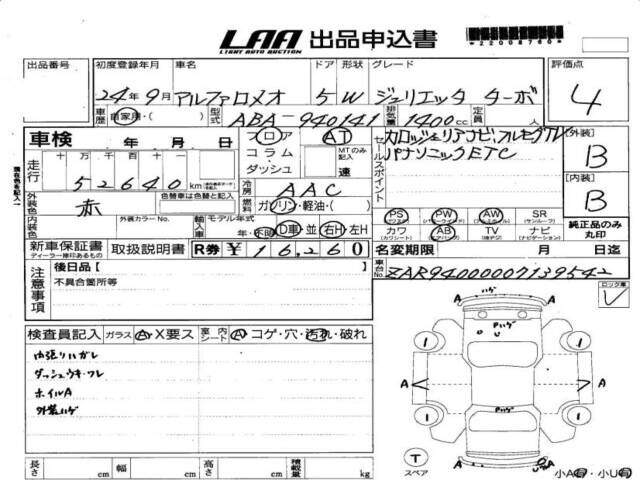 LAA 出品申込書
LIGHT AUTO AUCTION
*22008760*
出品番号 初度登録年月 車名 ドア 形状 グレード 評価点
24年9月 アルファロメオ 5 W ジュリエッタ ターボ 4
車歴 自家用・( ) 型式 ABA-940141 排気量 1400cc 定員 人
車検 年 月 日 フロア AT セールスポイント カロッツェリアナビ,フルセグTV 【外装】
走行 十 万 千 百 十 一 コラム MTのみ記入 パナソニックETC B
52640 km ダッシュ 速
冷房 AAC 【内装】
外装色 赤 色替車は色替と記入 燃料 ガソリン・軽油・( ) B
PS PW AW SR
(サンルーフ)
内装色 外装カラーNo. 輸入車 モデル年式 カワ AB TV ナビ 純正品のみ
年・不明 D車 並 右H・左H (カワシート) (エアバッグ) (地デジ) (ナビゲーション) 丸印
新車保証書 取扱説明書 R券 ¥16,260 名変期限 月 日迄
ディーラー捺印あるもの
車台No. ZAR94000007139542
注意事項 後日品【 】
不具合箇所等
ロック車
検査員記入 ガラス A・X要ス 室内シート A・コゲ・穴・汚れ・破れ
内張りハガレ
ダッシュウキ・フレ
ホイルA
外装ハゲ
A ハゲ A
Pハゲ
A A
Pハゲ
A A
T
スペア 小A有・小U有
長さ cm 幅 cm 高さ cm 積載量 kg